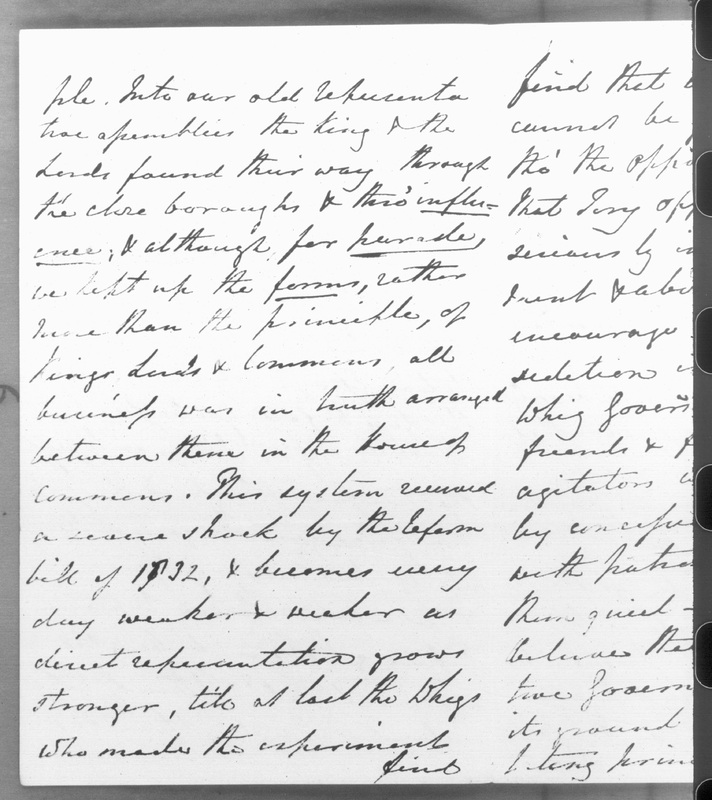 ple. Into our old representa
tive assemblies the King & the
Lords found their way through
the close boroughs & thro' influ=
ence; & although, for parade,
we kept up the forms, rather
more than the principle, of
Kings Lords & Commons, all
business was in truth arranged
between them in the House of
Commons. This system received
a severe shock by the Reform
bill of 1832, & becomes every
day weaker & weaker as
direct representation grows
stronger, till at last the Whigs
who made the experiment
find
find that
cannot be
tho' the oppo
that Tory opp
seriously in
encourage
sedition
Whig Govern
friends &
agitators
by
with patro
them quiet -
believe the
tive Govern
its ground